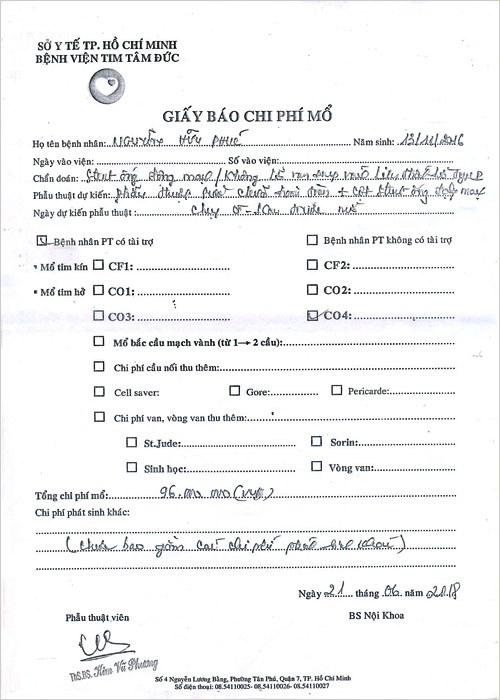 SỞ Y TẾ TP. HỒ CHÍ MINH
BỆNH VIỆN TIM TÂM ĐỨC
GIẤY BÁO CHI PHÍ MỔ
Họ tên bệnh nhân: NGUYỄN HỮU PHÚC Năm sinh: 13/11/2016
Ngày vào viện: Số vào viện:
Chẩn đoán: Stent ống động mạch / Không lỗ van
Phẫu thuật dự kiến: Phẫu thuật sửa chữa hoàn toàn + cắt stent ống động mạch
Ngày dự kiến phẫu thuật :
Bệnh nhân PT có tài trợ Bệnh nhân PT không có tài trợ
• Mổ tim kín CF1: CF2:
• Mổ tim hở CO1: CO2:
CO3: CO4:
Mổ bắc cầu mạch vành (từ 1→ 2 cầu):
Chi phí cầu nối thu thêm:
Cell saver: Gore: Pericarde:
Chi phí van, vòng van thu thêm:
St.Jude: Sorin:
Sinh học: Vòng van:
Tổng chi phí mổ:
Chi phí phát sinh khác:
(Chưa bao gồm các chi phí phát sinh khác)
Ngày 21 tháng 06 năm 2018
Phẫu thuật viên BS Nội Khoa
ThS.BS. Kim Vũ Phương
Số 4 Nguyễn Lương Bằng, Phường Tân Phú, Quận 7, TP. Hồ Chí Minh
Số điện thoại: 08.54110025- 08.54110026- 08.54110027